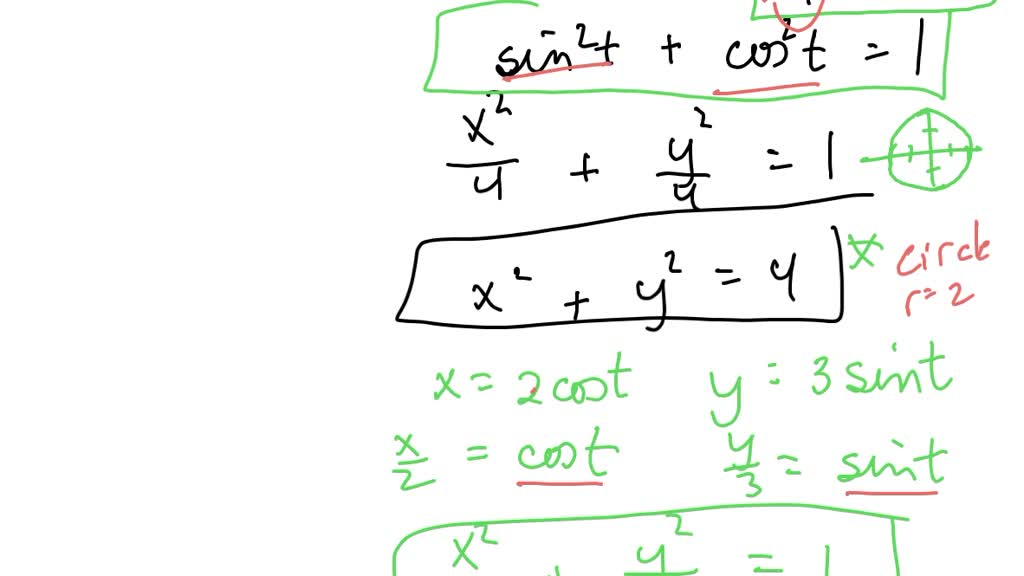 sin²t + cos²t = 1
x²/4 + y²/4 = 1
x² + y² = 4 * circle r=2
x = 2cost y = 3sint
x/2 = cost y/3 = sint
x² + y² = 1